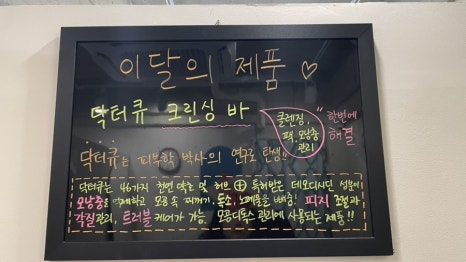 이달의 제품 ♡
닥터큐 크린싱 바
클렌징,
팩, 모낭충
관리
"한번에
해결
닥터큐는 피부학 박사의 연구로 탄생!!
닥터큐는 46가지 한방 약초 및 허브 ⊕ 특허받은 데모디시딘 성분이
모낭충을 억제하고 모공 속 찌꺼기, 독소, 노폐물을 배출! 피지 조절과
각질관리, 트러블 케어가 가능. 모공디톡스 관리에 사용되는 제품!!